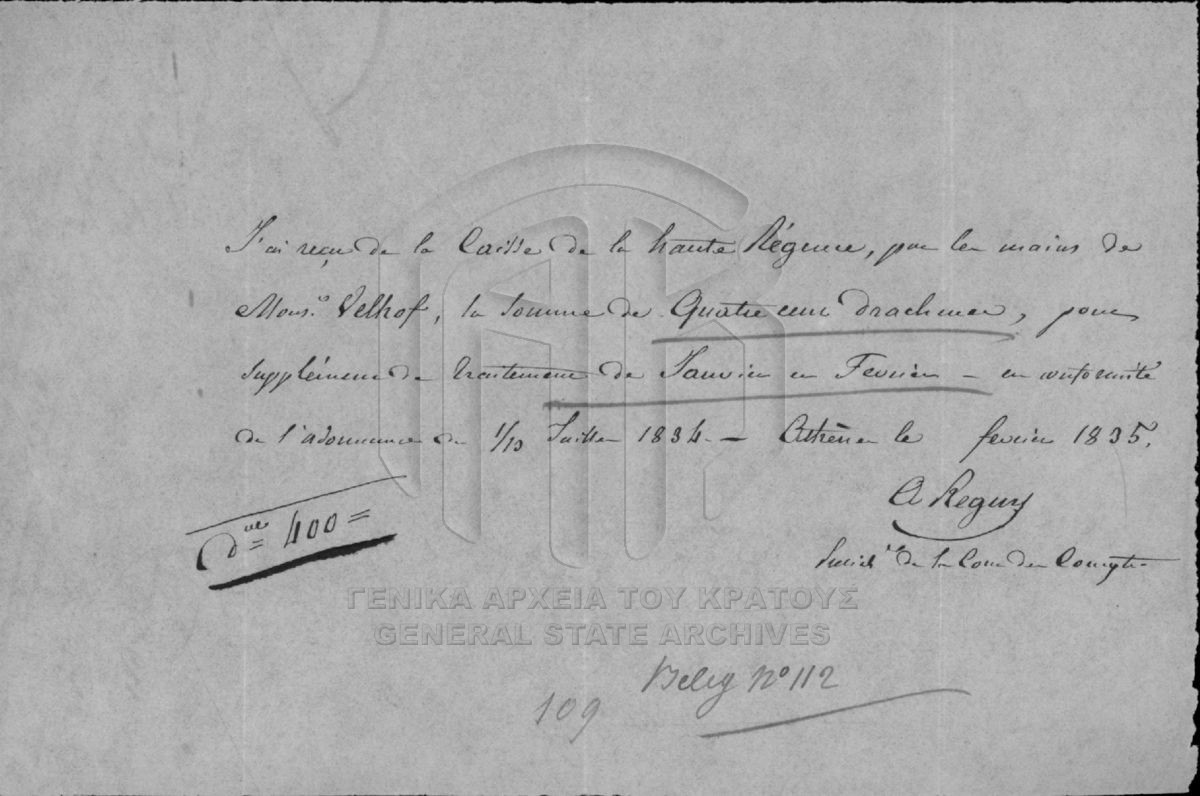 J'ai reçu de la Caisse de la haute Régence, par les mains de
Mons.r Velhof, la somme de Quatre cent drachmes, pour
supplément de traitement de Janvier et Fevrier – en conformité
de l'adonnance du 1/13 Juillet 1834. – Athènes le fevrier 1835.
A Regny
de la Cour des Comptes
d = 400 =
ΓΕΝΙΚΑ ΑΡΧΕΙΑ ΤΟΥ ΚΡΑΤΟΥΣ
GENERAL STATE ARCHIVES
Beleg No 112
109